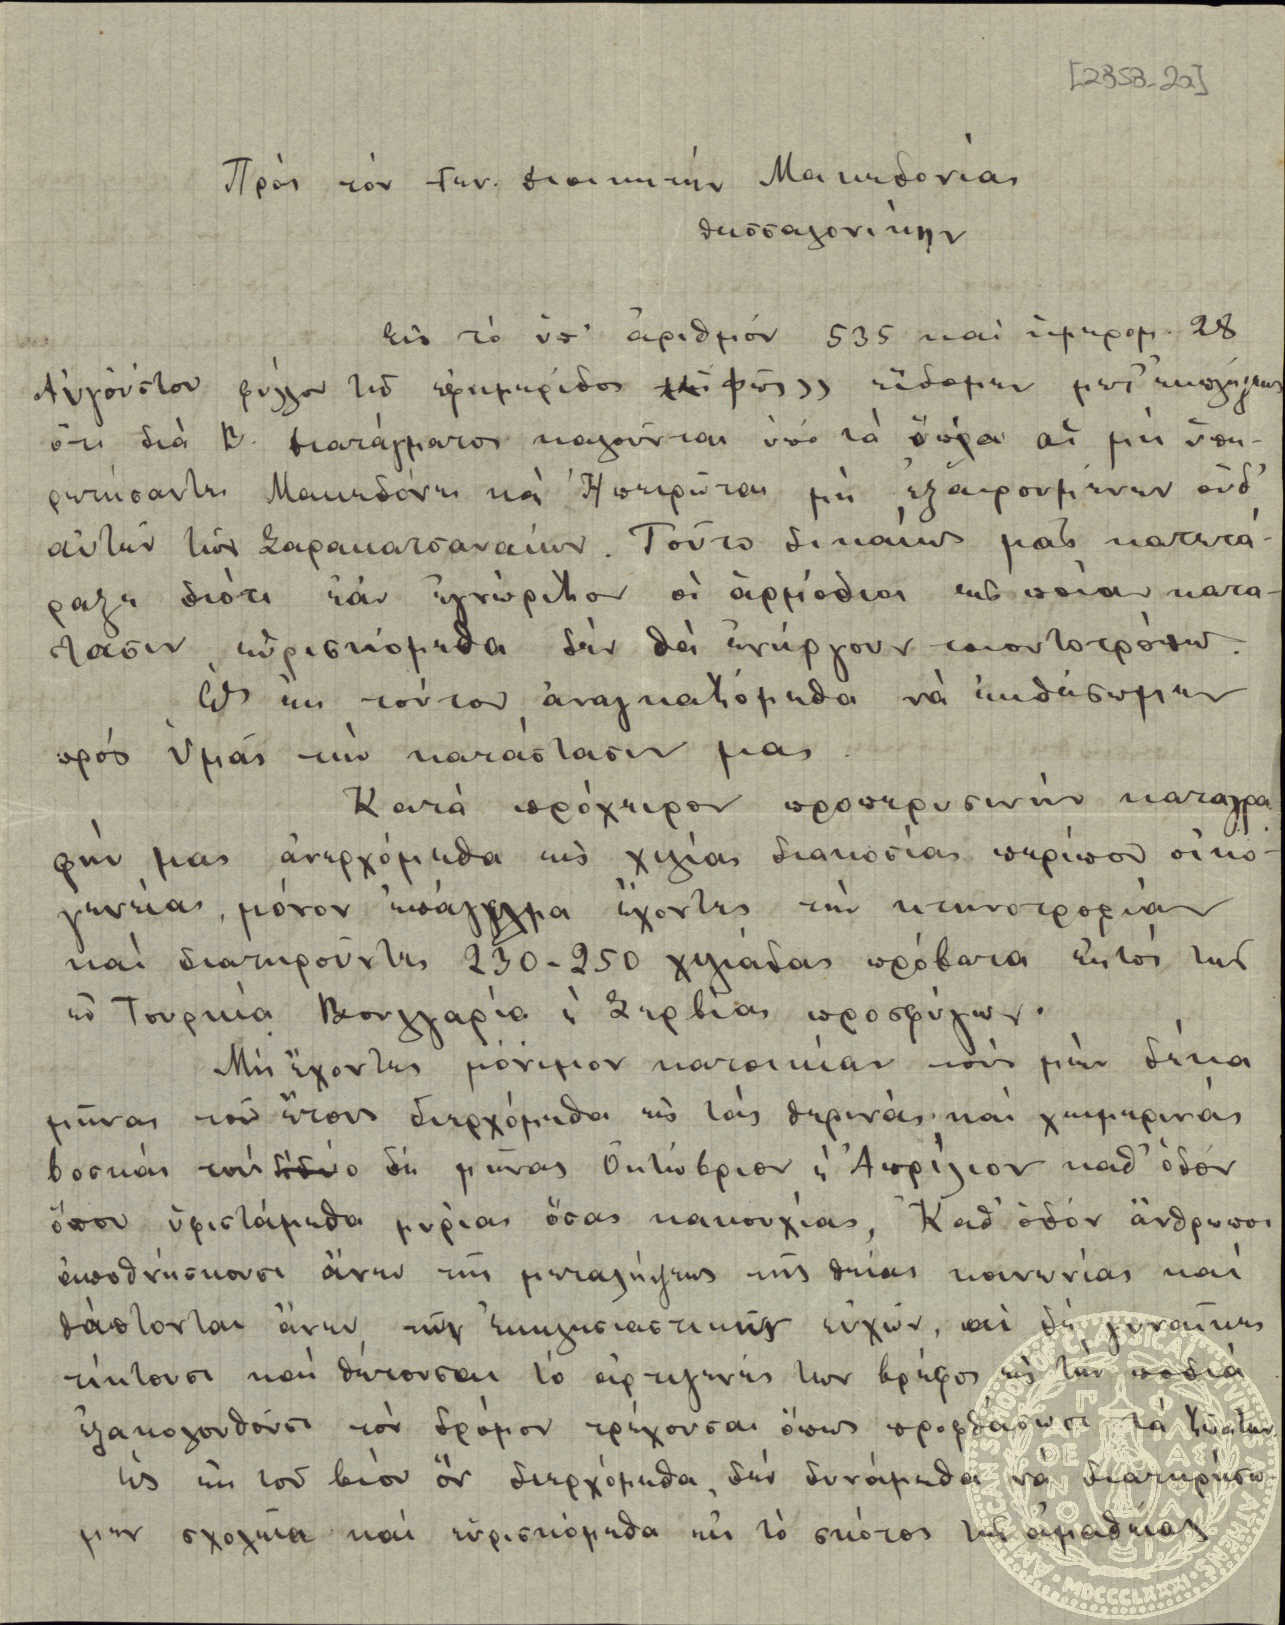 [2353-2α]
Πρὸς τὸν Γεν. Διοικητὴν Μακεδονίας
Θεσσαλονίκην
Εἰς τὸ ὑπ' ἀριθμὸν 535 καὶ ἡμερομ. 28
Αὐγούστου φύλλον τῆς ἐφημερίδος Φῶς» εἴδομεν μετ' ἐκπλήξεως
ὅτι διὰ Β. Διατάγματος καλοῦνται ὑπὸ τὰ ὅπλα οἱ μὴ ὑπη-
ρετήσαντες Μακεδόνες καὶ Ἠπειρῶται μὴ ἐξαιρουμένων οὐδ'
αὐτῶν τῶν Σαρακατσαναίων. Τοῦτο δικαίως μᾶς κατετά-
ραξε διότι ἐὰν ἐγνώριζον οἱ ἁρμόδιοι εἰς ποίαν κατά-
στασιν εὑρισκόμεθα δὲν θὰ ἐνήργουν τοιουτοτρόπως.
Ὡς ἐκ τούτου ἀναγκαζόμεθα νὰ ἐκθέσωμεν
πρὸς Ὑμᾶς τὴν κατάστασίν μας.
Κατὰ πρόχειρον προπερυσινὴν καταγρα-
φήν μας ἀνερχόμεθα εἰς χιλίας διακοσίας περίπου οἰκο-
γενείας, μόνον ἐπάγγελμα ἔχοντες τὴν κτηνοτροφίαν
καὶ διατηροῦντες 230-250 χιλιάδας πρόβατα ἐκτὸς τῶν
ἐν Τουρκίᾳ Βουλγαρίᾳ ἢ Σερβίας προσφύγων.
Μὴ ἔχοντες μόνιμον κατοικίαν τοὺς μὲν δέκα
μῆνας τοῦ ἔτους διερχόμεθα εἰς τὰς θερινὰς καὶ χειμερινὰς
βοσκὰς τοὺς δύο δὲ μῆνας Ὀκτώβριον ἢ Ἀπρίλιον καθ' ὁδὸν
ὅπου ὑφιστάμεθα μυρίας ὅσας κακουχίας, Καθ' ὁδὸν ἄνθρωποι
ἀποθνήσκουσι ἄνευ τῆς μεταλήψεως τῆς θείας κοινωνίας καὶ
θάπτονται ἄνευ τῶν ἐκκλησιαστικῶν εὐχῶν, αἱ δὲ γυναῖκες
τίκτουσι καὶ θέτουσαι τὸ ἀρτιγενές των βρέφος εἰς τὴν ποδιά
ἐξακολουθοῦσι τὸν δρόμον τρέχουσαι ὅπως προφθάσωσι τὰ ζῶα των
Ὡς ἐκ τοῦ βίου ὃν διερχόμεθα, δὲν δυνάμεθα νὰ διατηρήσω-
μεν σχολεῖα καὶ εὑρισκόμεθα εἰς τὸ σκότος τῆς ἀμαθείας